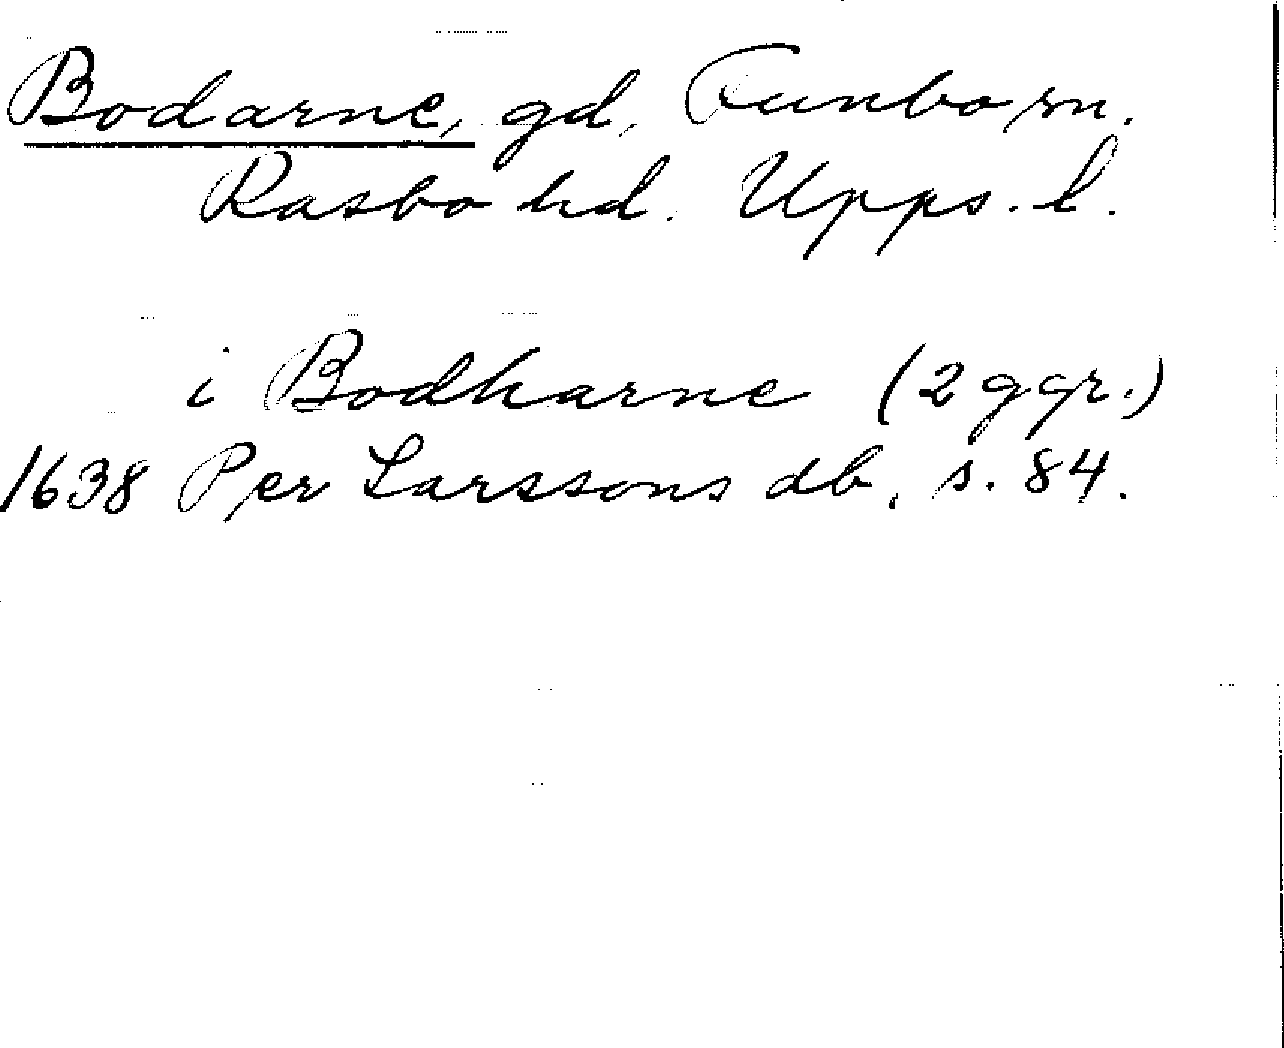 Bodarne, gd, Funbo sn.
Rasbo hd. Upps. l.
i Bodharne (2 ggr.)
1638 Per Larssons db, s. 84.